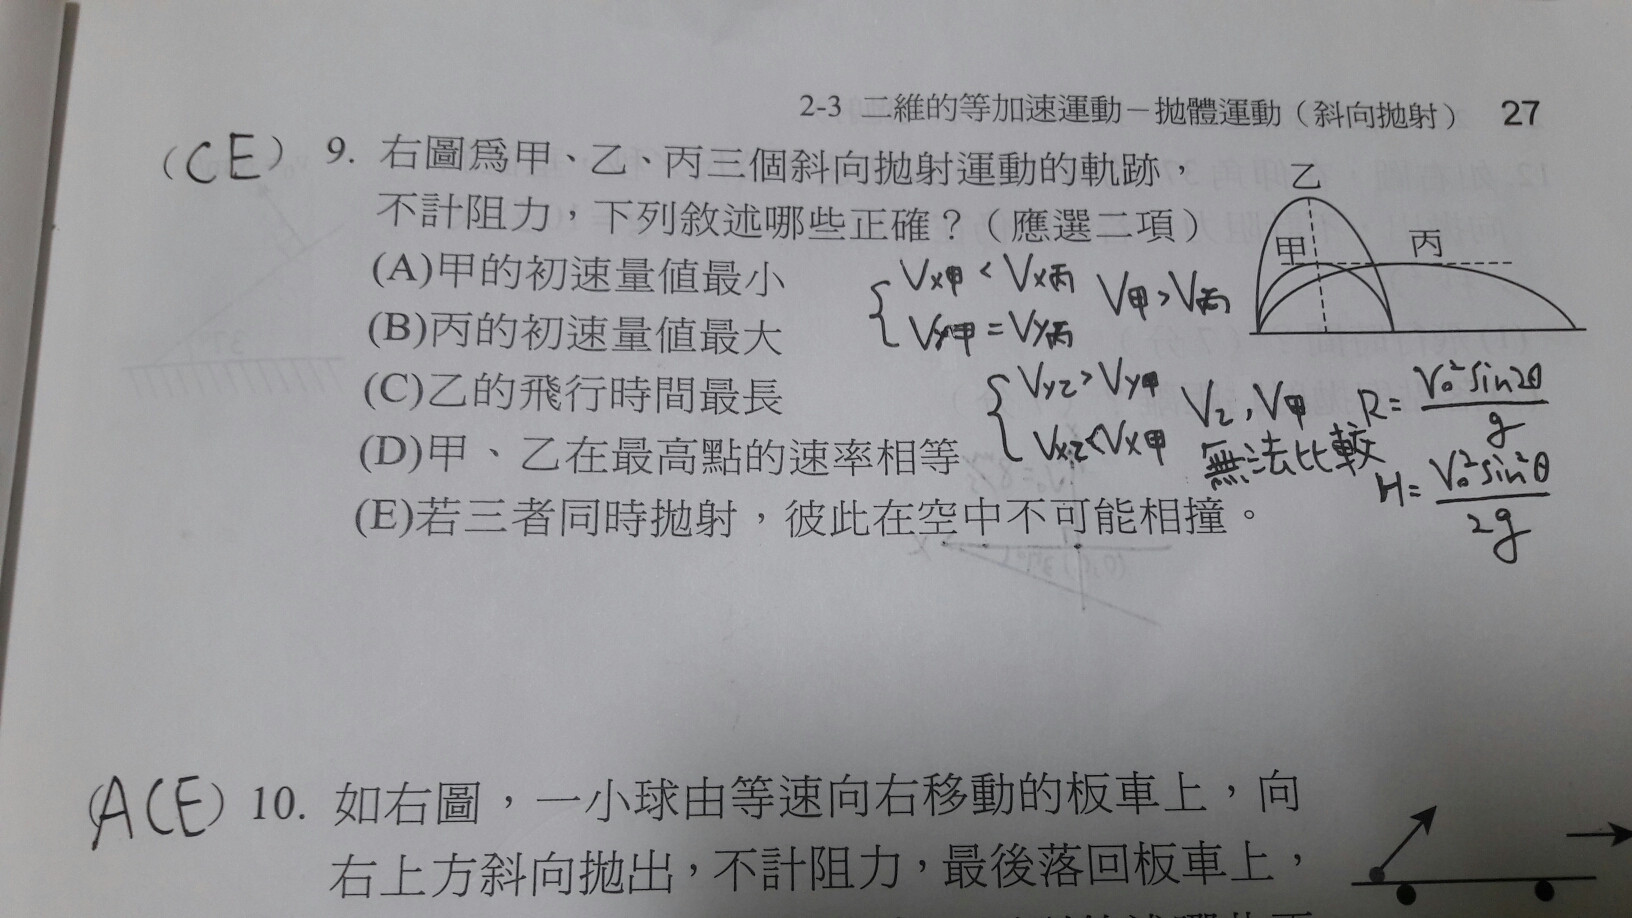 2-3 二維的等加速運動－拋體運動（斜向拋射） 27
(CE) 9. 右圖為甲、乙、丙三個斜向拋射運動的軌跡，
不計阻力，下列敘述哪些正確？（應選二項）
(A)甲的初速量值最小
(B)丙的初速量值最大
(C)乙的飛行時間最長
(D)甲、乙在最高點的速率相等
(E)若三者同時拋射，彼此在空中不可能相撞。
乙
甲
丙
Vx甲 < Vx丙
Vy甲 = Vy丙
V甲 > V丙
Vy乙 > Vy甲
Vx乙 < Vx甲
V乙, V甲
無法比較
R = V₀² sin2θ / g
H = V₀² sin²θ / 2g
(ACE) 10. 如右圖，一小球由等速向右移動的板車上，向
右上方斜向拋出，不計阻力，最後落回板車上，